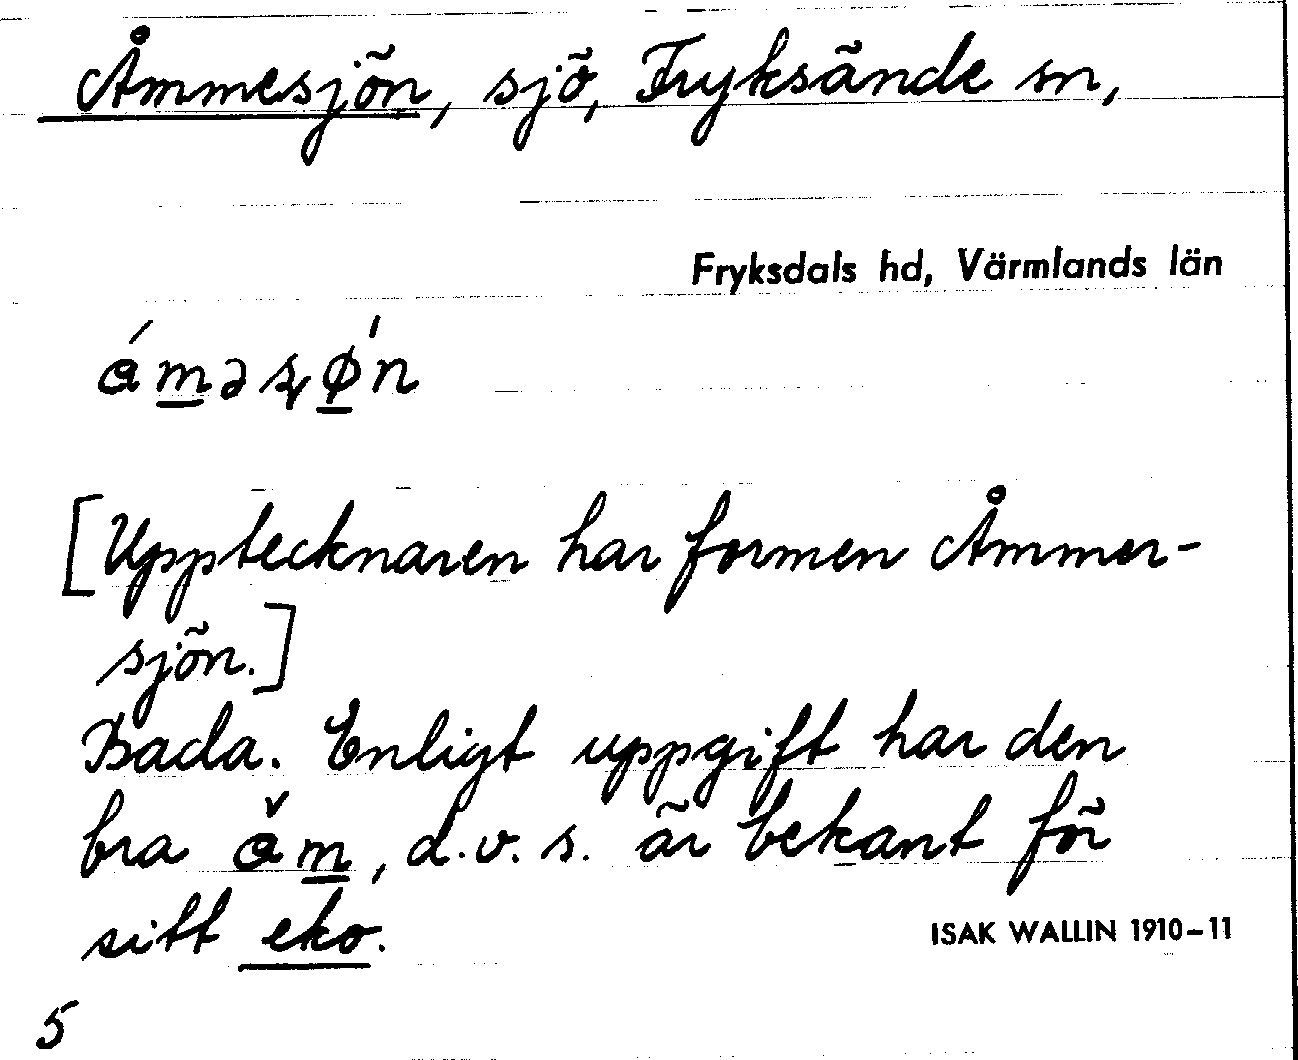 Åmmesjön, sjö, Fryksände sn,
Fryksdals hd, Värmlands län
[Upptecknaren har formen Åmmer-
sjön.]
Bada. Enligt uppgift har den
bra åm, d.v.s. är bekant för
sitt eko.
ISAK WALLIN 1910–11
5